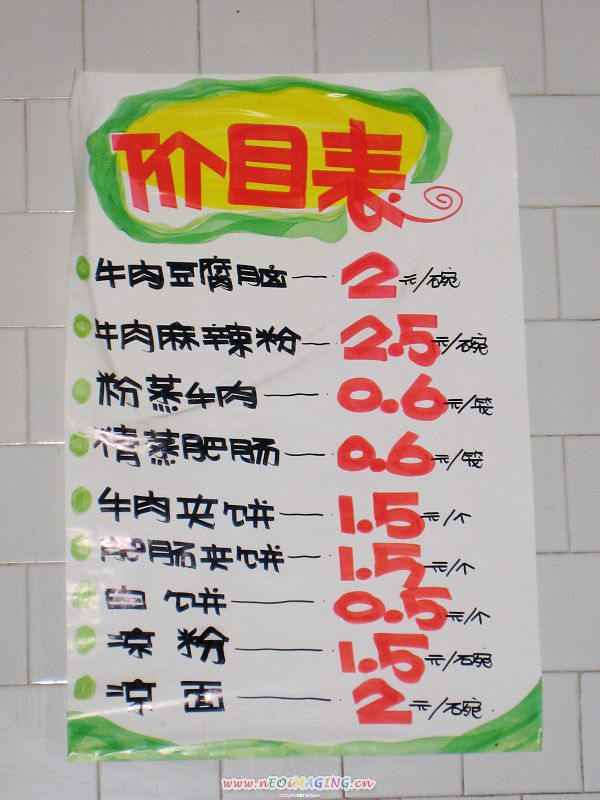 价目表
牛肉豆腐脑—2元/碗
牛肉麻辣粉—2.5元/碗
粉蒸牛肉—0.6元/笼
精蒸肥肠—0.6元/笼
牛肉夹饼—1.5元/个
肥肠夹饼—1.5元/个
白饼—0.5元/个
凉粉—1.5元/碗
凉面—2元/碗
www.nEOiMAGING.cn